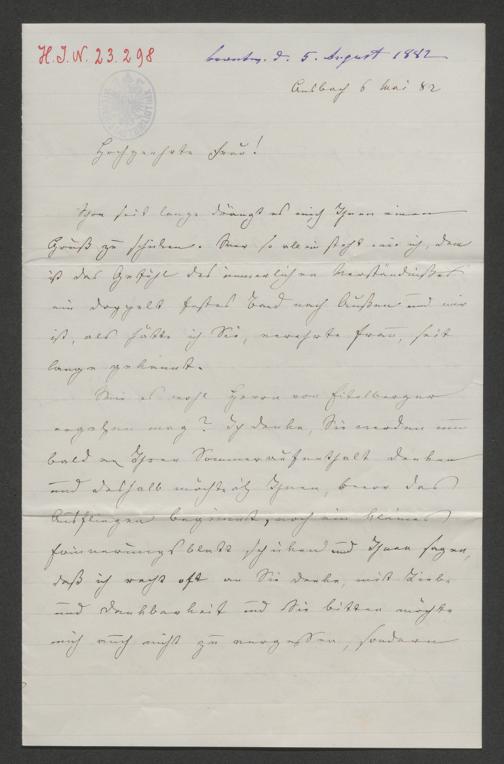 H. I. N. 23.298
beantw. d. 5. August 1882
Ansbach 6 Mai 82
Hochgeehrte Frau!
Schon seit lange drängt es mich Ihnen einen
Gruß zu schicken. Wer so allein steht wie ich, dem
ist das Gefühl des innerlichen Verständnißes
ein doppelt festes Band nach Außen und mir
ist, als hätte ich Sie, verehrte Frau, seit
lange gekannt.
Wie es wohl Herrn von Eitelberger
ergehen mag? Ich denke, Sie werden nun
bald an Ihren Sommeraufenthalt denken
und deshalb möchte ich Ihnen, bevor das
Ausfliegen beginnt, noch ein kleines
Erinnerungsblatt schicken und Ihnen sagen,
daß ich recht oft an Sie denke, mit Liebe
und Dankbarkeit und Sie bitten möchte
mich auch nicht zu vergessen, sondern